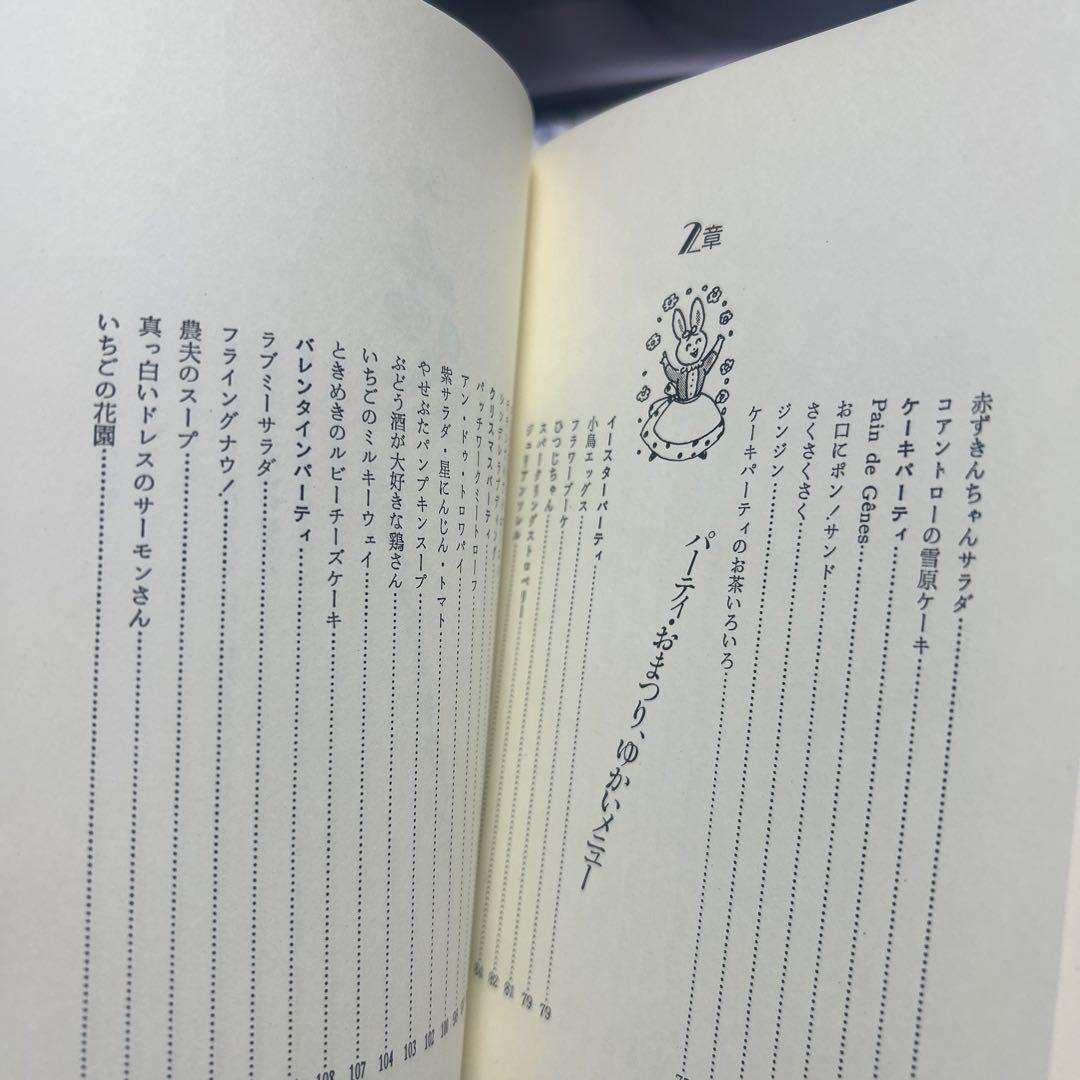 赤ずきんちゃんサラダ
コアントローの雪原ケーキ
ケーキパーティ
Pain de Gênes
お口にポン！サンド
さくさくさく
ジンジン
ケーキパーティのお茶いろいろ
2章
パーティ・おまつり、ゆかいメニュー
イースターパーティ 79
小鳥エッグス 79
フラワーブーケ 81
ひつじちゃん 82
スパークリングストロベリー
クリスマスパーティ
パッチワークミートローフ
アン・ドゥ・トロワパイ
紫サラダ・星にんじん・トマト
やせぶたパンプキンスープ 102
ぶどう酒が大好きな鶏さん 103
いちごのミルキーウェイ 104
ときめきのルビーチーズケーキ 107
バレンタインパーティ 108
ラブミーサラダ
フライングナウ！
農夫のスープ
真っ白いドレスのサーモンさん
いちごの花園